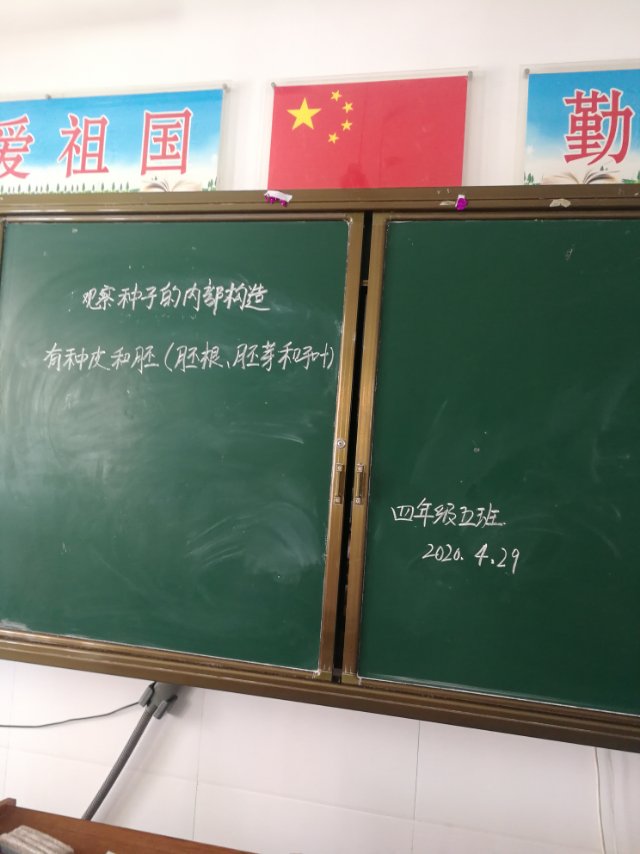 爱祖国
勤
观察种子的内部构造
有种皮和胚(胚根、胚芽和子叶)
四年级五班
2020.4.29